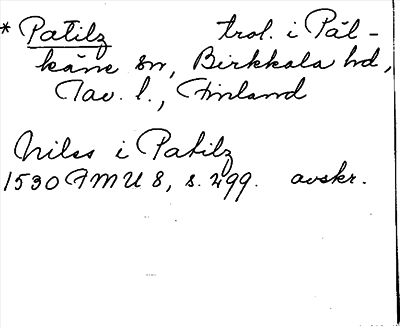 * Patilz trol. i Päl-
käne sn, Birkkala hd,
Tav. l., Finland
Nils i Patilz
1530 FMU 8, s. 499. avskr.